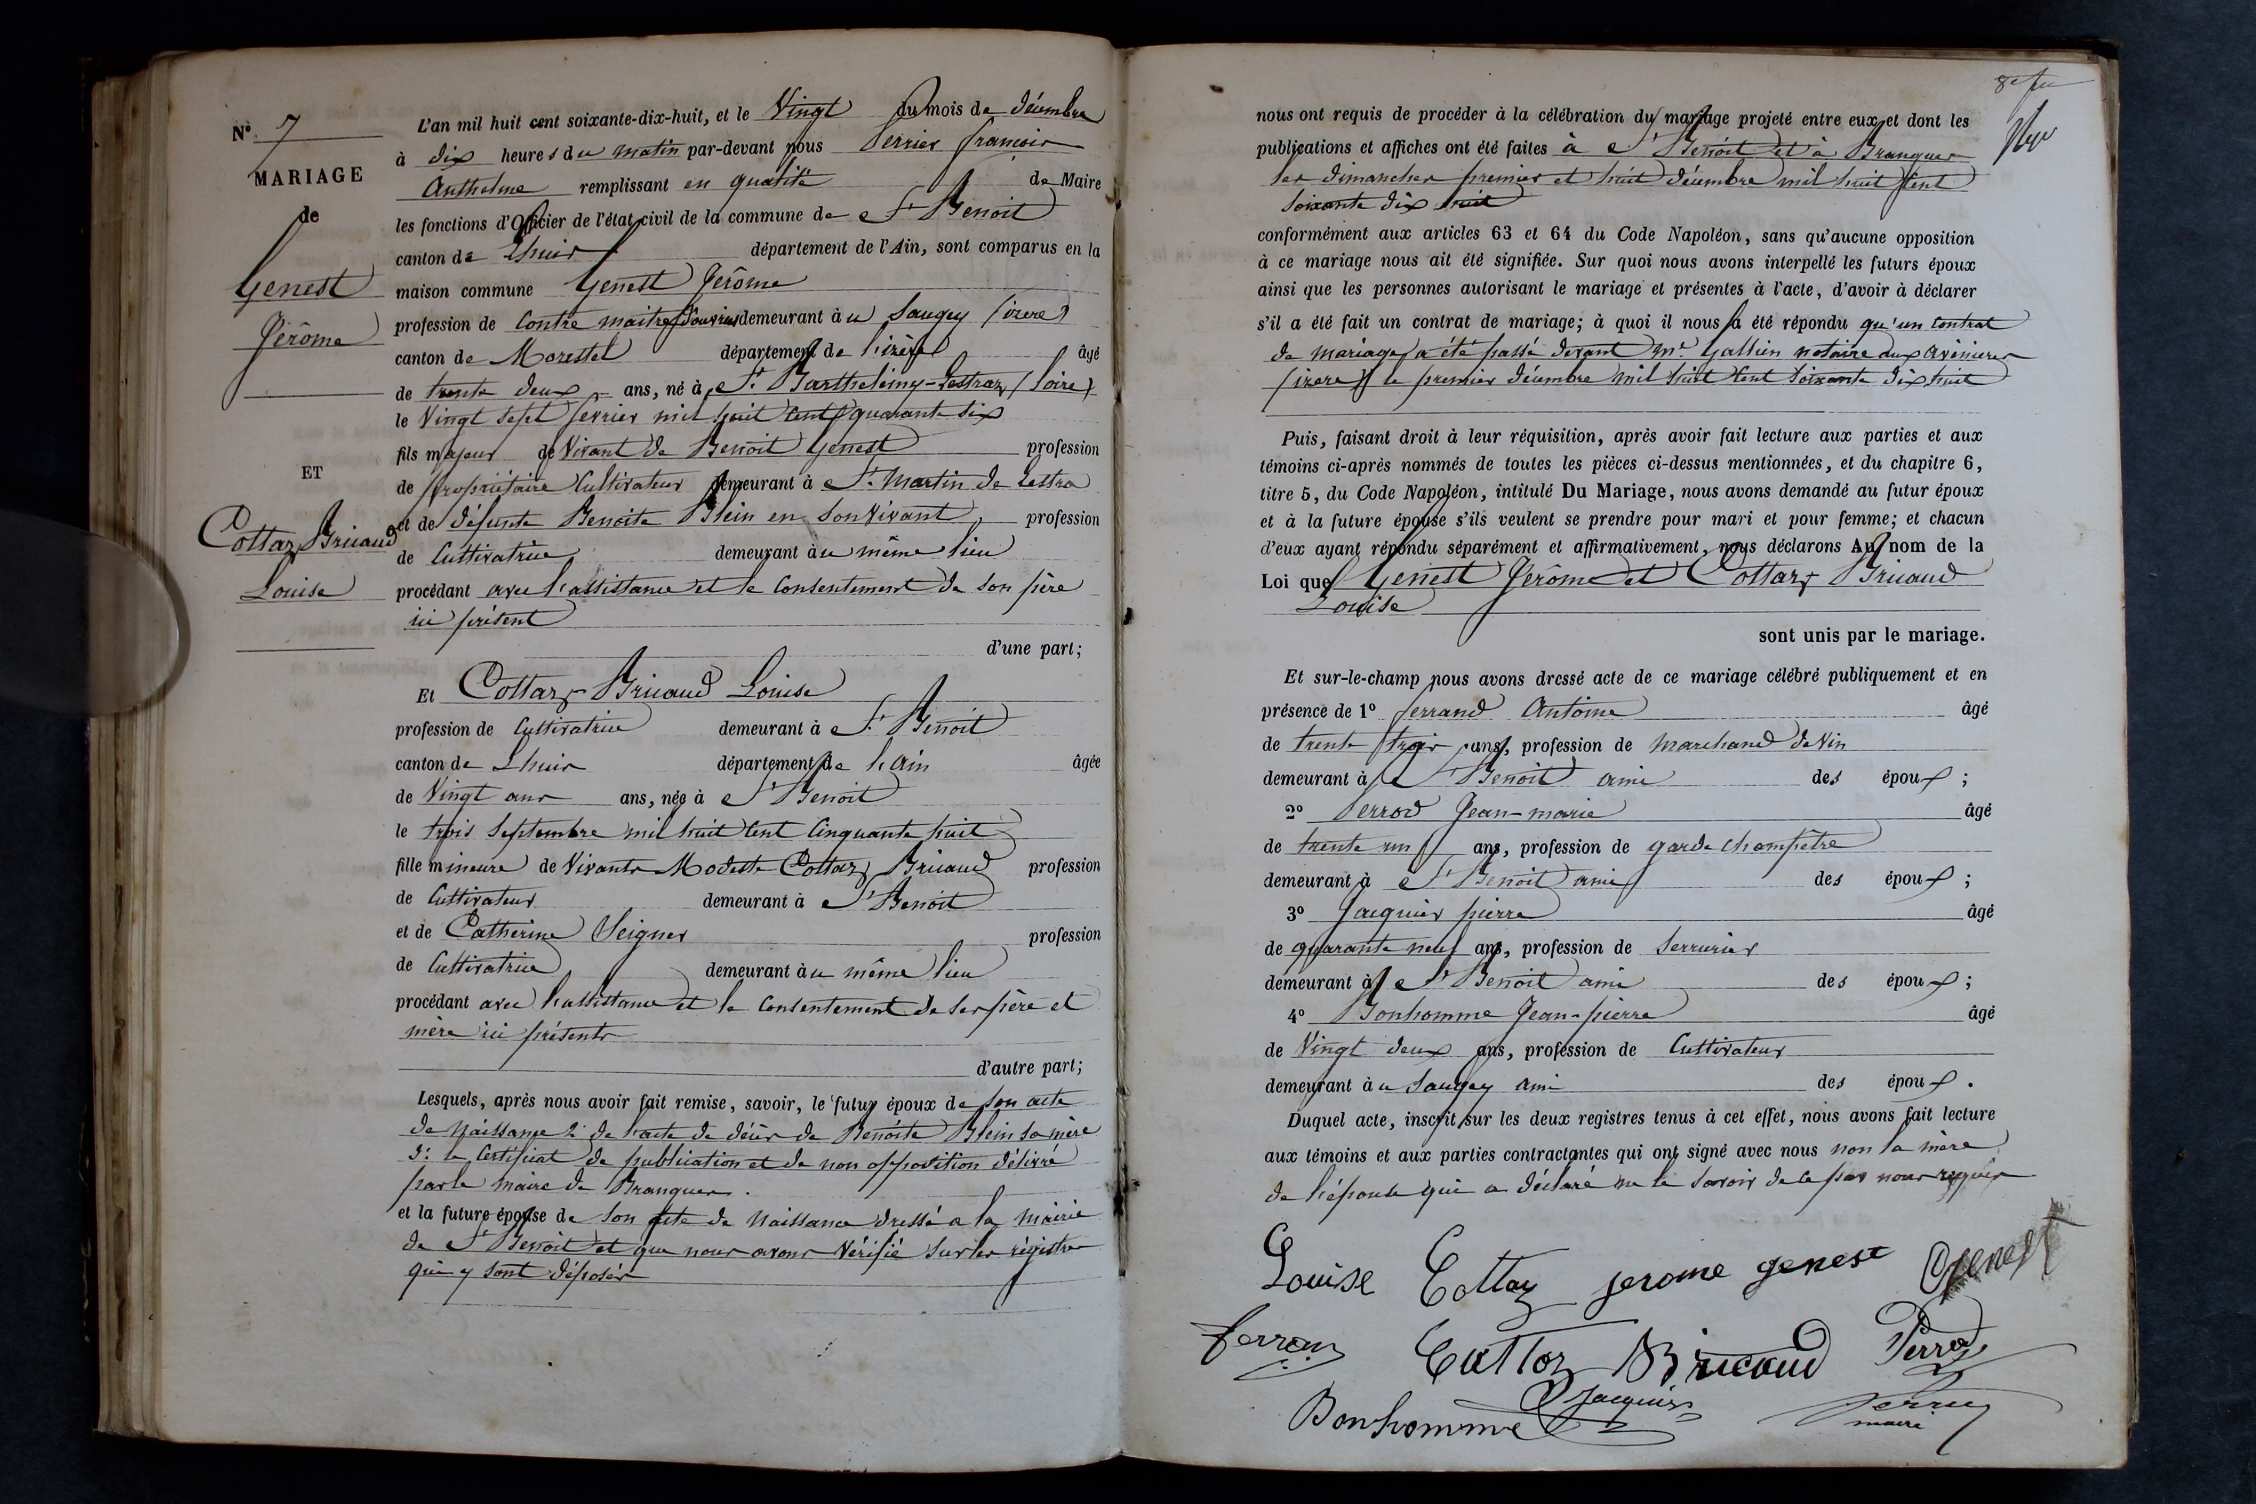 N° 7
MARIAGE
de
Genest
Jérôme
ET
Cottaz Bricaud
Louise
L'an mil huit cent soixante-dix-huit, et le Vingt du mois de décembre
à dix heures du matin par-devant nous Perrier françois
Anthelme remplissant en qualité de Maire
les fonctions d'Officier de l'état civil de la commune de St Benoit
canton de Lhuis département de l'Ain, sont comparus en la
maison commune Genest Jérôme
profession de Contre maitre d'ouvriers demeurant au Saugey (izere)
canton de Morestel département de l'izère âgé
de trente deux ans, né à St Barthelémy-Lestraz (Loire)
le Vingt sept fevrier mil huit cent quarante six
fils majeur de Vivant de Benoit Genest profession
de propriétaire Cultivateur demeurant à St Martin de Lestra
et de défunte Benoite Blein en son vivant, profession
de Cultivatrice demeurant au même lieu
procédant avec l'assistance et le Consentement de son père
ici présent
d'une part;
Et Cottaz Bricaud Louise
profession de Cultivatrice demeurant à St Benoit
canton de Lhuis département de l'Ain âgée
de Vingt ans ans, née à St Benoit
le trois Septembre mil huit cent Cinquante huit
fille mineure de Vivants Modeste Cottaz Bricaud profession
de Cultivateur demeurant à St Benoit
et de Catherine Seigner profession
de Cultivatrice demeurant au même lieu
procédant avec l'assistance et le Consentement de ses père et
mère ici présents
d'autre part;
Lesquels, après nous avoir fait remise, savoir, le futur époux de son acte
de Naissance 2° de l'acte de décès de Benoite Blein sa mère
3° le Certificat de publication et de non opposition délivré
par le maire de Brangues.
et la future épouse de son acte de Naissance dressé a la mairie
de St Benoit et que nous avons Vérifié sur les régistres
qui y sont déposés
nous ont requis de procéder à la célébration du mariage projeté entre eux et dont les
publications et affiches ont été faites à St Benoit et à Brangues
les dimanches premier et huit décembre mil huit cent
soixante dix huit
conformément aux articles 63 et 64 du Code Napoléon, sans qu'aucune opposition
à ce mariage nous ait été signifiée. Sur quoi nous avons interpellé les futurs époux
ainsi que les personnes autorisant le mariage et présentes à l'acte, d'avoir à déclarer
s'il a été fait un contrat de mariage; à quoi il nous a été répondu qu'un Contrat
de mariage a été passé devant Me Gallien notaire aux avenieres
(izere) le premier décembre mil huit cent soixante dix huit
Puis, faisant droit à leur réquisition, après avoir fait lecture aux parties et aux
témoins ci-après nommés de toutes les pièces ci-dessus mentionnées, et du chapitre 6,
titre 5, du Code Napoléon, intitulé Du Mariage, nous avons demandé au futur époux
et à la future épouse s'ils veulent se prendre pour mari et pour femme; et chacun
d'eux ayant répondu séparément et affirmativement, nous déclarons Au nom de la
Loi que Genest Jérôme et Cottaz Bricaud
Louise
sont unis par le mariage.
Et sur-le-champ nous avons dressé acte de ce mariage célébré publiquement et en
présence de 1° ferrand Antoine âgé
de trente trois ans, profession de Marchand de Vin
demeurant à St Benoit ami des époux;
2° Perrod Jean-marie âgé
de trente un ans, profession de garde Champêtre
demeurant à St Benoit ami des époux;
3° Jacquier pierre âgé
de quarante neuf ans, profession de Serrurier
demeurant à St Benoit ami des époux;
4° Bonhomme Jean-pierre âgé
de Vingt deux ans, profession de Cultivateur
demeurant au Saugey ami des époux.
Duquel acte, inscrit sur les deux registres tenus à cet effet, nous avons fait lecture
aux témoins et aux parties contractantes qui ont signé avec nous non la mère
de l'épouse qui a déclaré ne le savoir de ce par nous requis
Louise Cottaz jerome genest Genest
ferran Cottaz Bricaud Perrod
Bonhomme Jacquier Perrier
maire